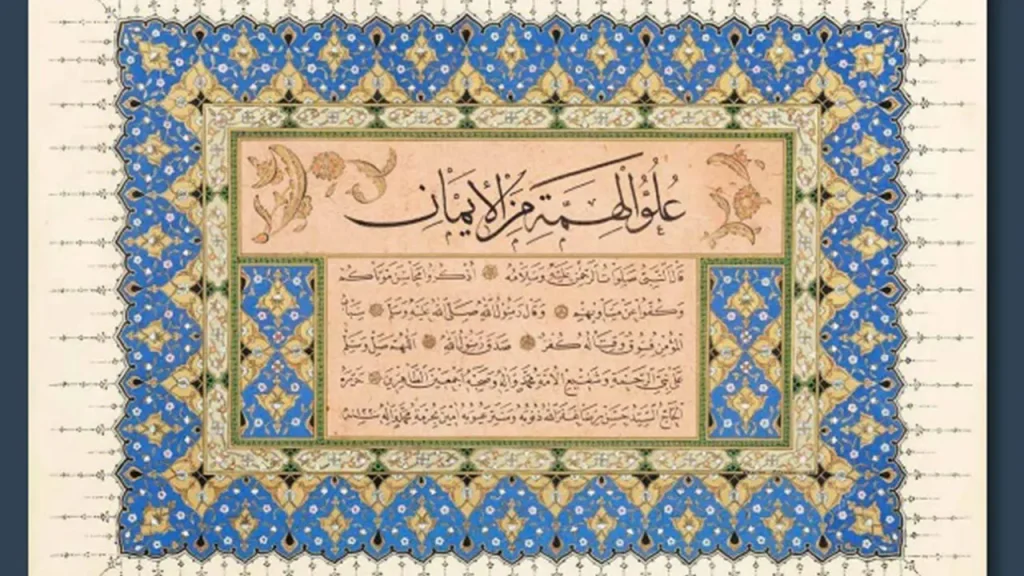 عُلُوُّ الْهِمَّةِ مِنَ الْإِيمَانِ
قال النبي صلوات الرحمن عليه وسلامه اذكروا محاسن موتاكم
وكفوا عن مساويهم وقال رسول الله صلى الله عليه وسلم سباب
المؤمن فسوق وقتاله كفر صدق رسول الله اللهم صل وسلم
على نبي الرحمة وشفيع الأمة محمد وآله وصحبه أجمعين الطاهرين حرره
الحاج السيد حسن رضا غفر الله ذنوبه وستر عيوبه آمين بحرمة محمد وآله